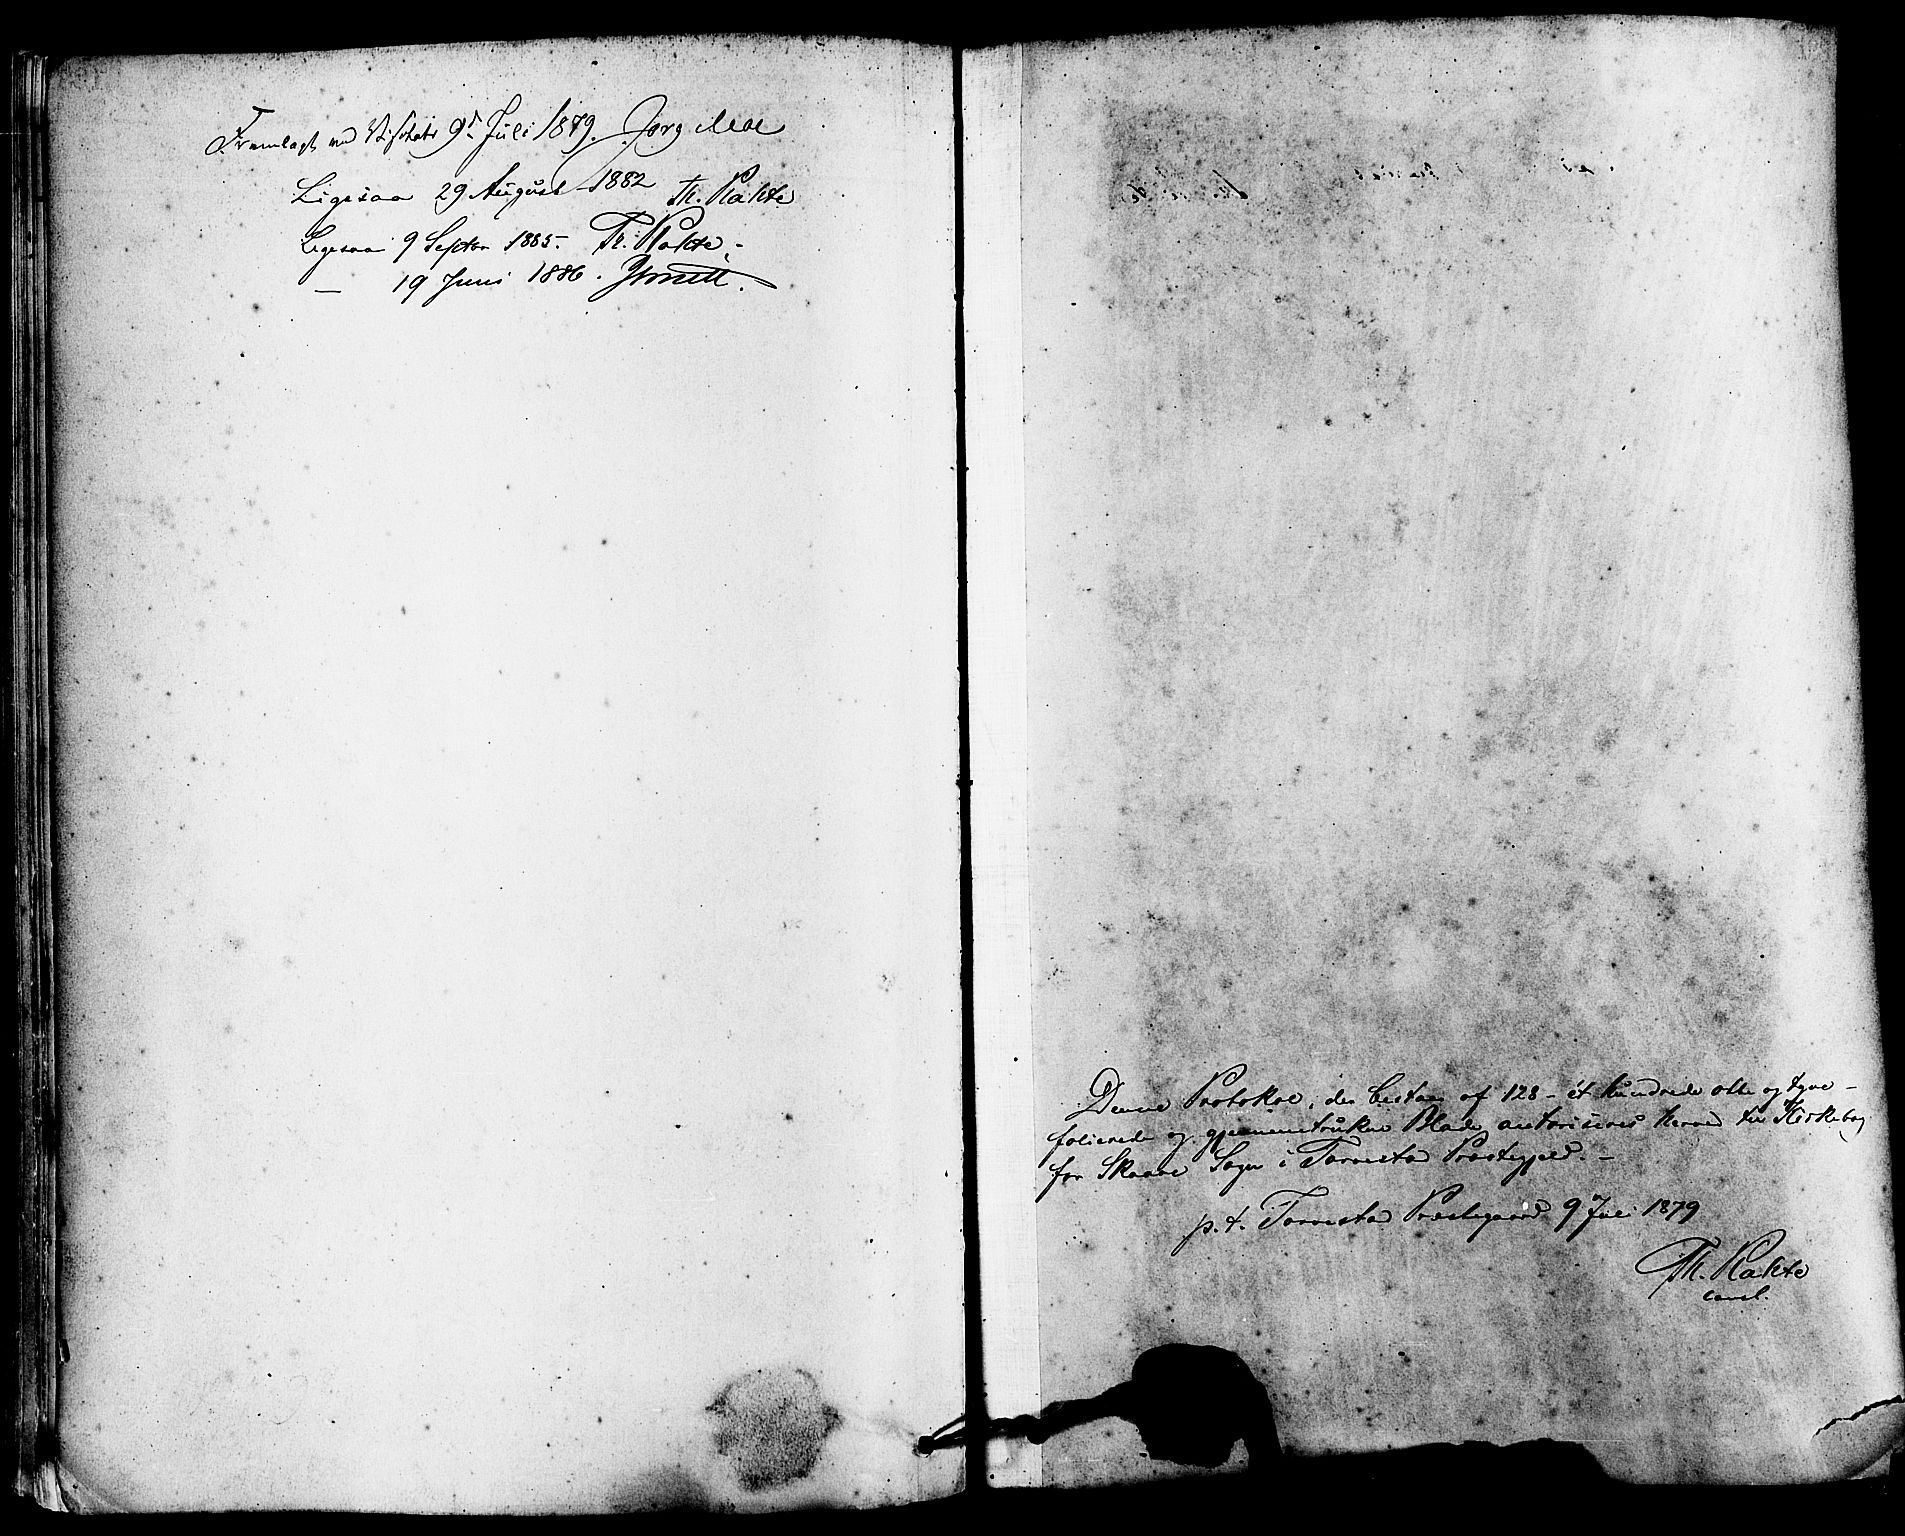 Fremlagt ved Visitats 9de Juli 1879. Jørg Moe
Ligesaa 29 August 1882 Th. Rakte
Ligesaa 9 Septbr 1885. Th. Rakte
— 19 Juni 1886.
Denne Protokol, der bestaar af 128 - ét hundrede otte og tyve -
folierede og gjennemtrukne Blade, autoriseres herved til Kirkebog
for Skaare Sogn i Torvestad Præstegjeld. -
p. t. Torvestad Præstegaard 9 Juli 1879
Th. Rakte
const.